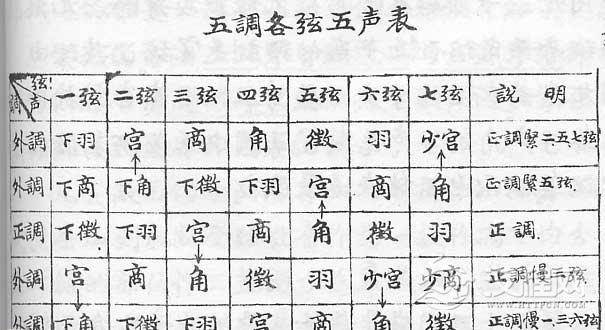 五調各弦五声表
弦 調 声 一弦 二弦 三弦 四弦 五弦 六弦 七弦 説明
外調 下羽 宫 商 角 徵 羽 少宫 正調緊二.五.七弦
外調 下商 下角 下徵 下羽 宫 商 角 正調緊五弦
正調 下徵 下羽 宫 商 角 徵 羽 正調
外調 宫 商 角 徵 羽 少宫 少商 正調慢三弦
下角 下徵 下羽 宫 商 角 徵 正調慢一.三六弦